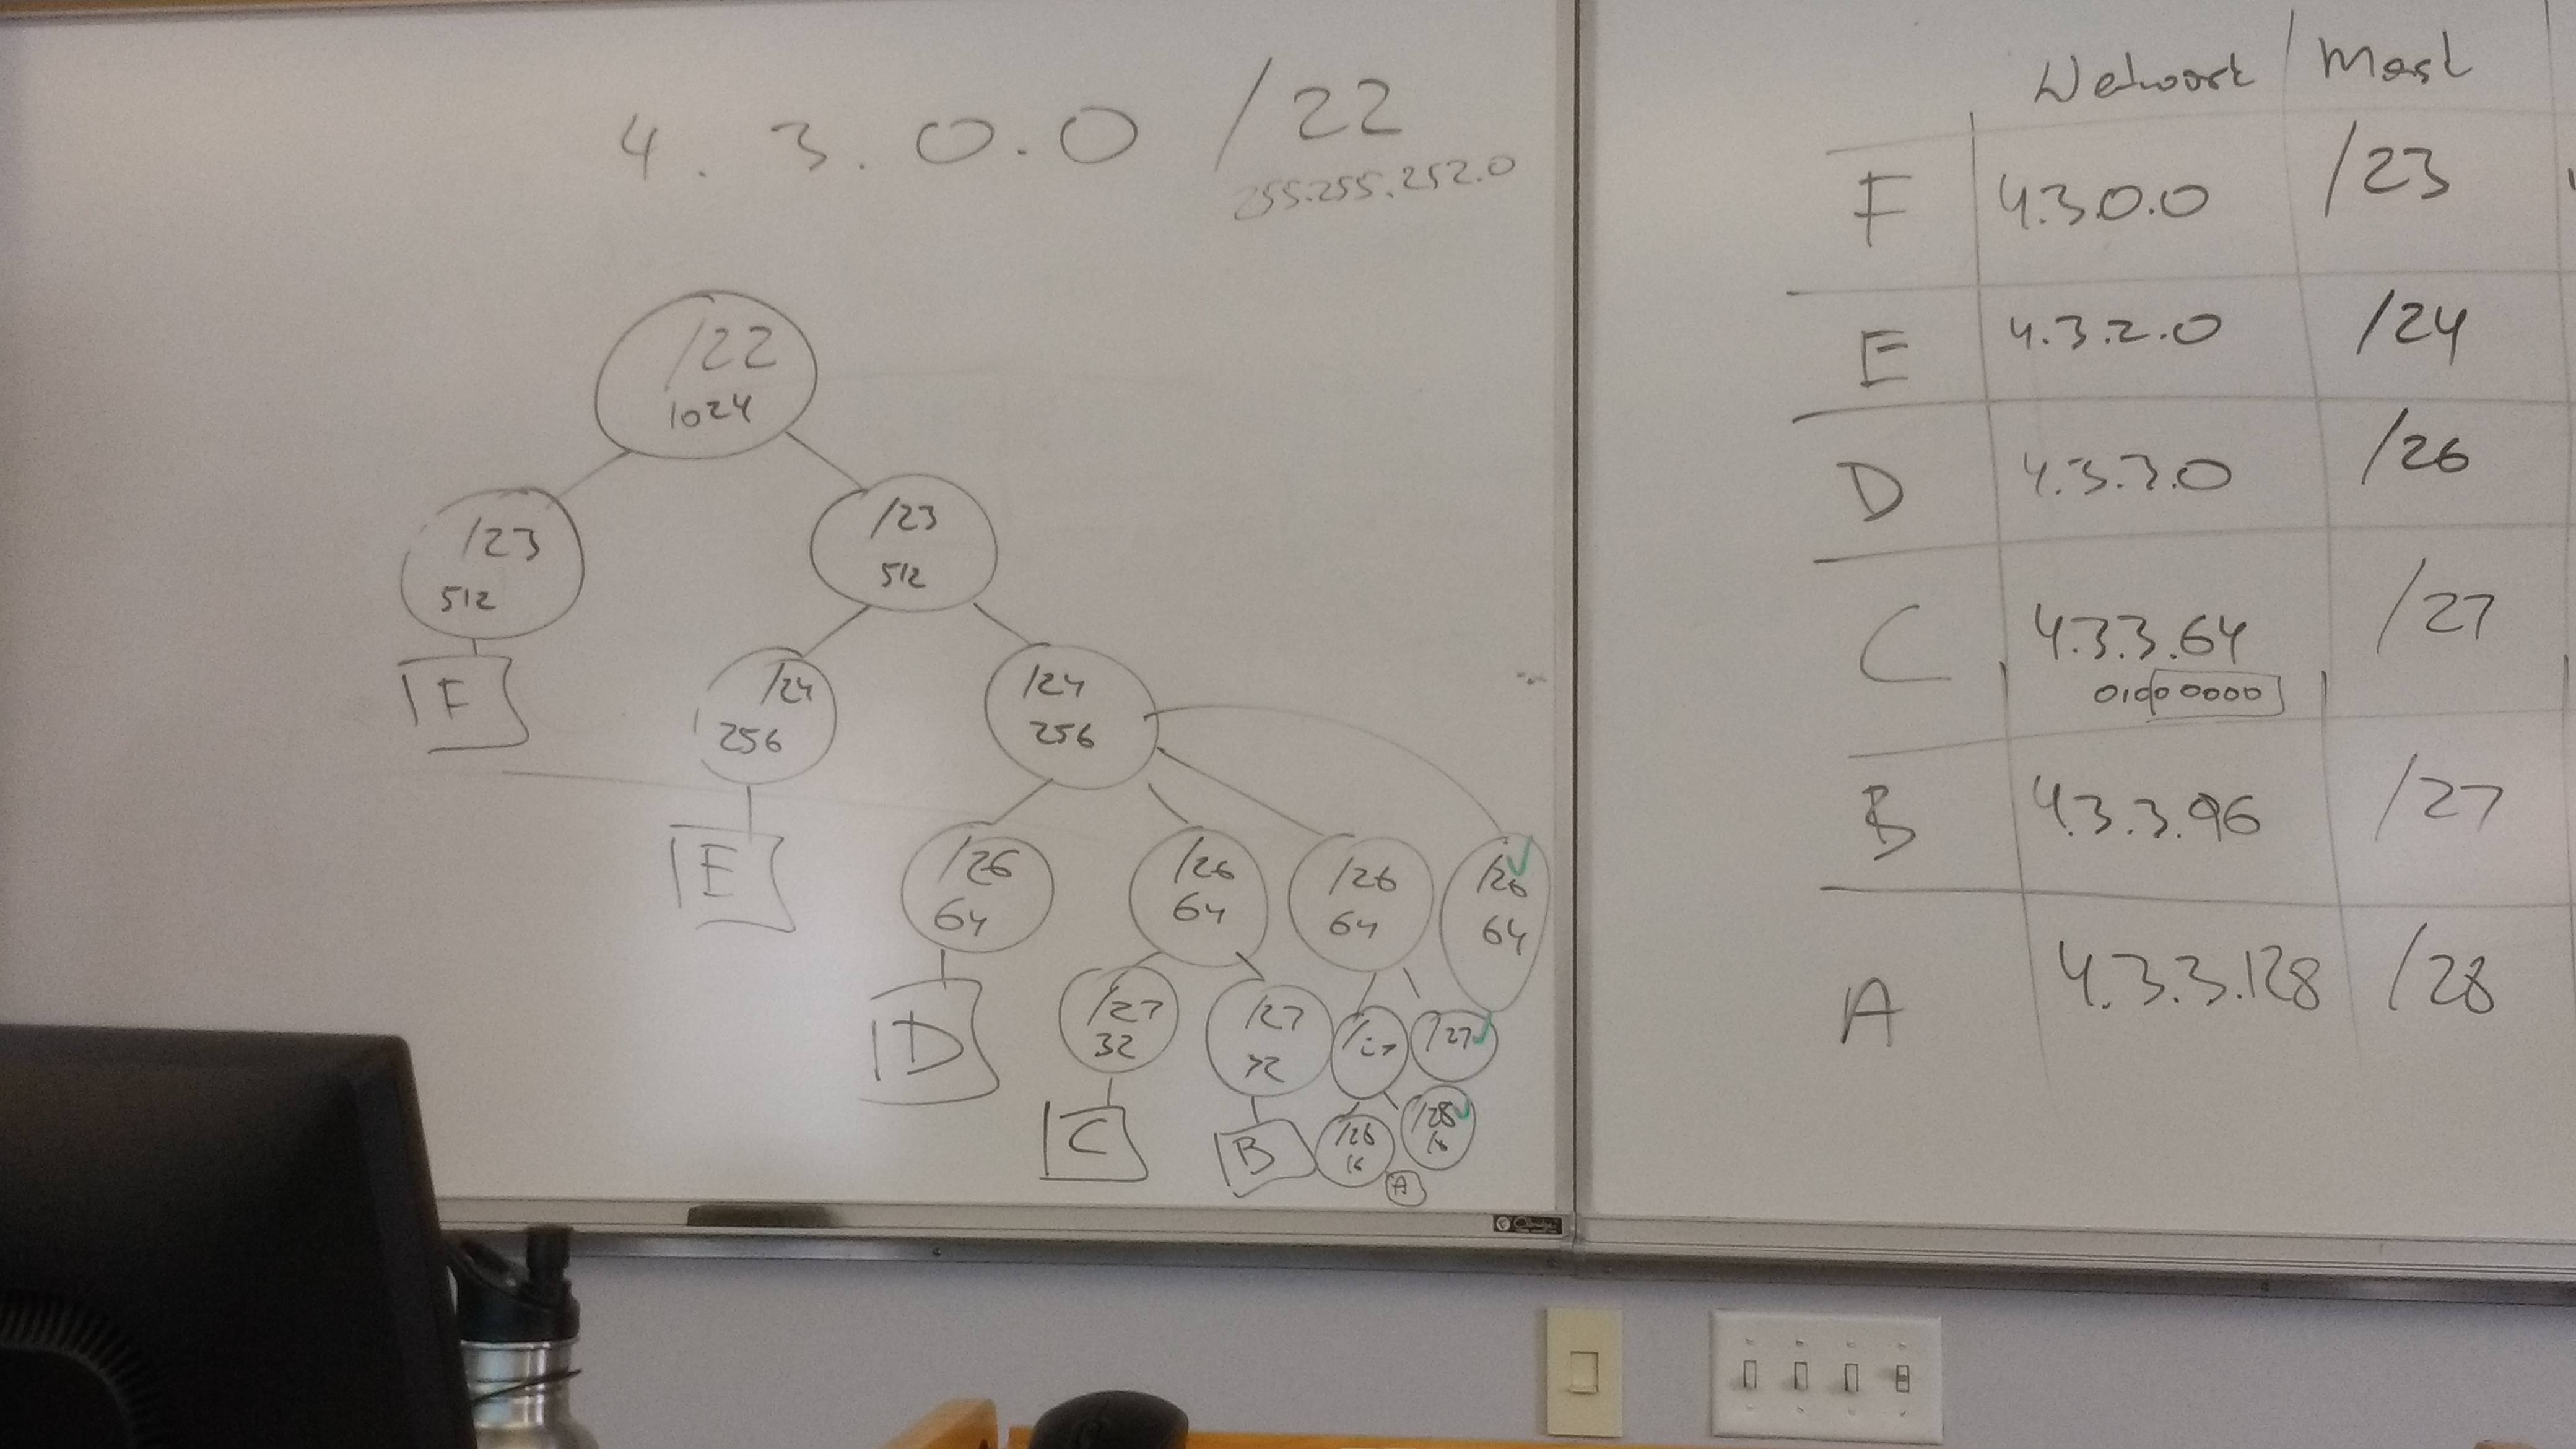 4.3.0.0 /22
255.255.252.0
/22
1024
/23
512
/23
512
F
/24
256
/24
256
E
/26
64
/26
64
/26
64
/26
64
D
/27
32
/27
32
/27
/27
C
B
/28
16
/28
16
A
Network Mask
F 4.3.0.0 /23
E 4.3.2.0 /24
D 4.3.3.0 /26
C 4.3.3.64 /27
01000000
B 4.3.3.96 /27
A 4.3.3.128 /28